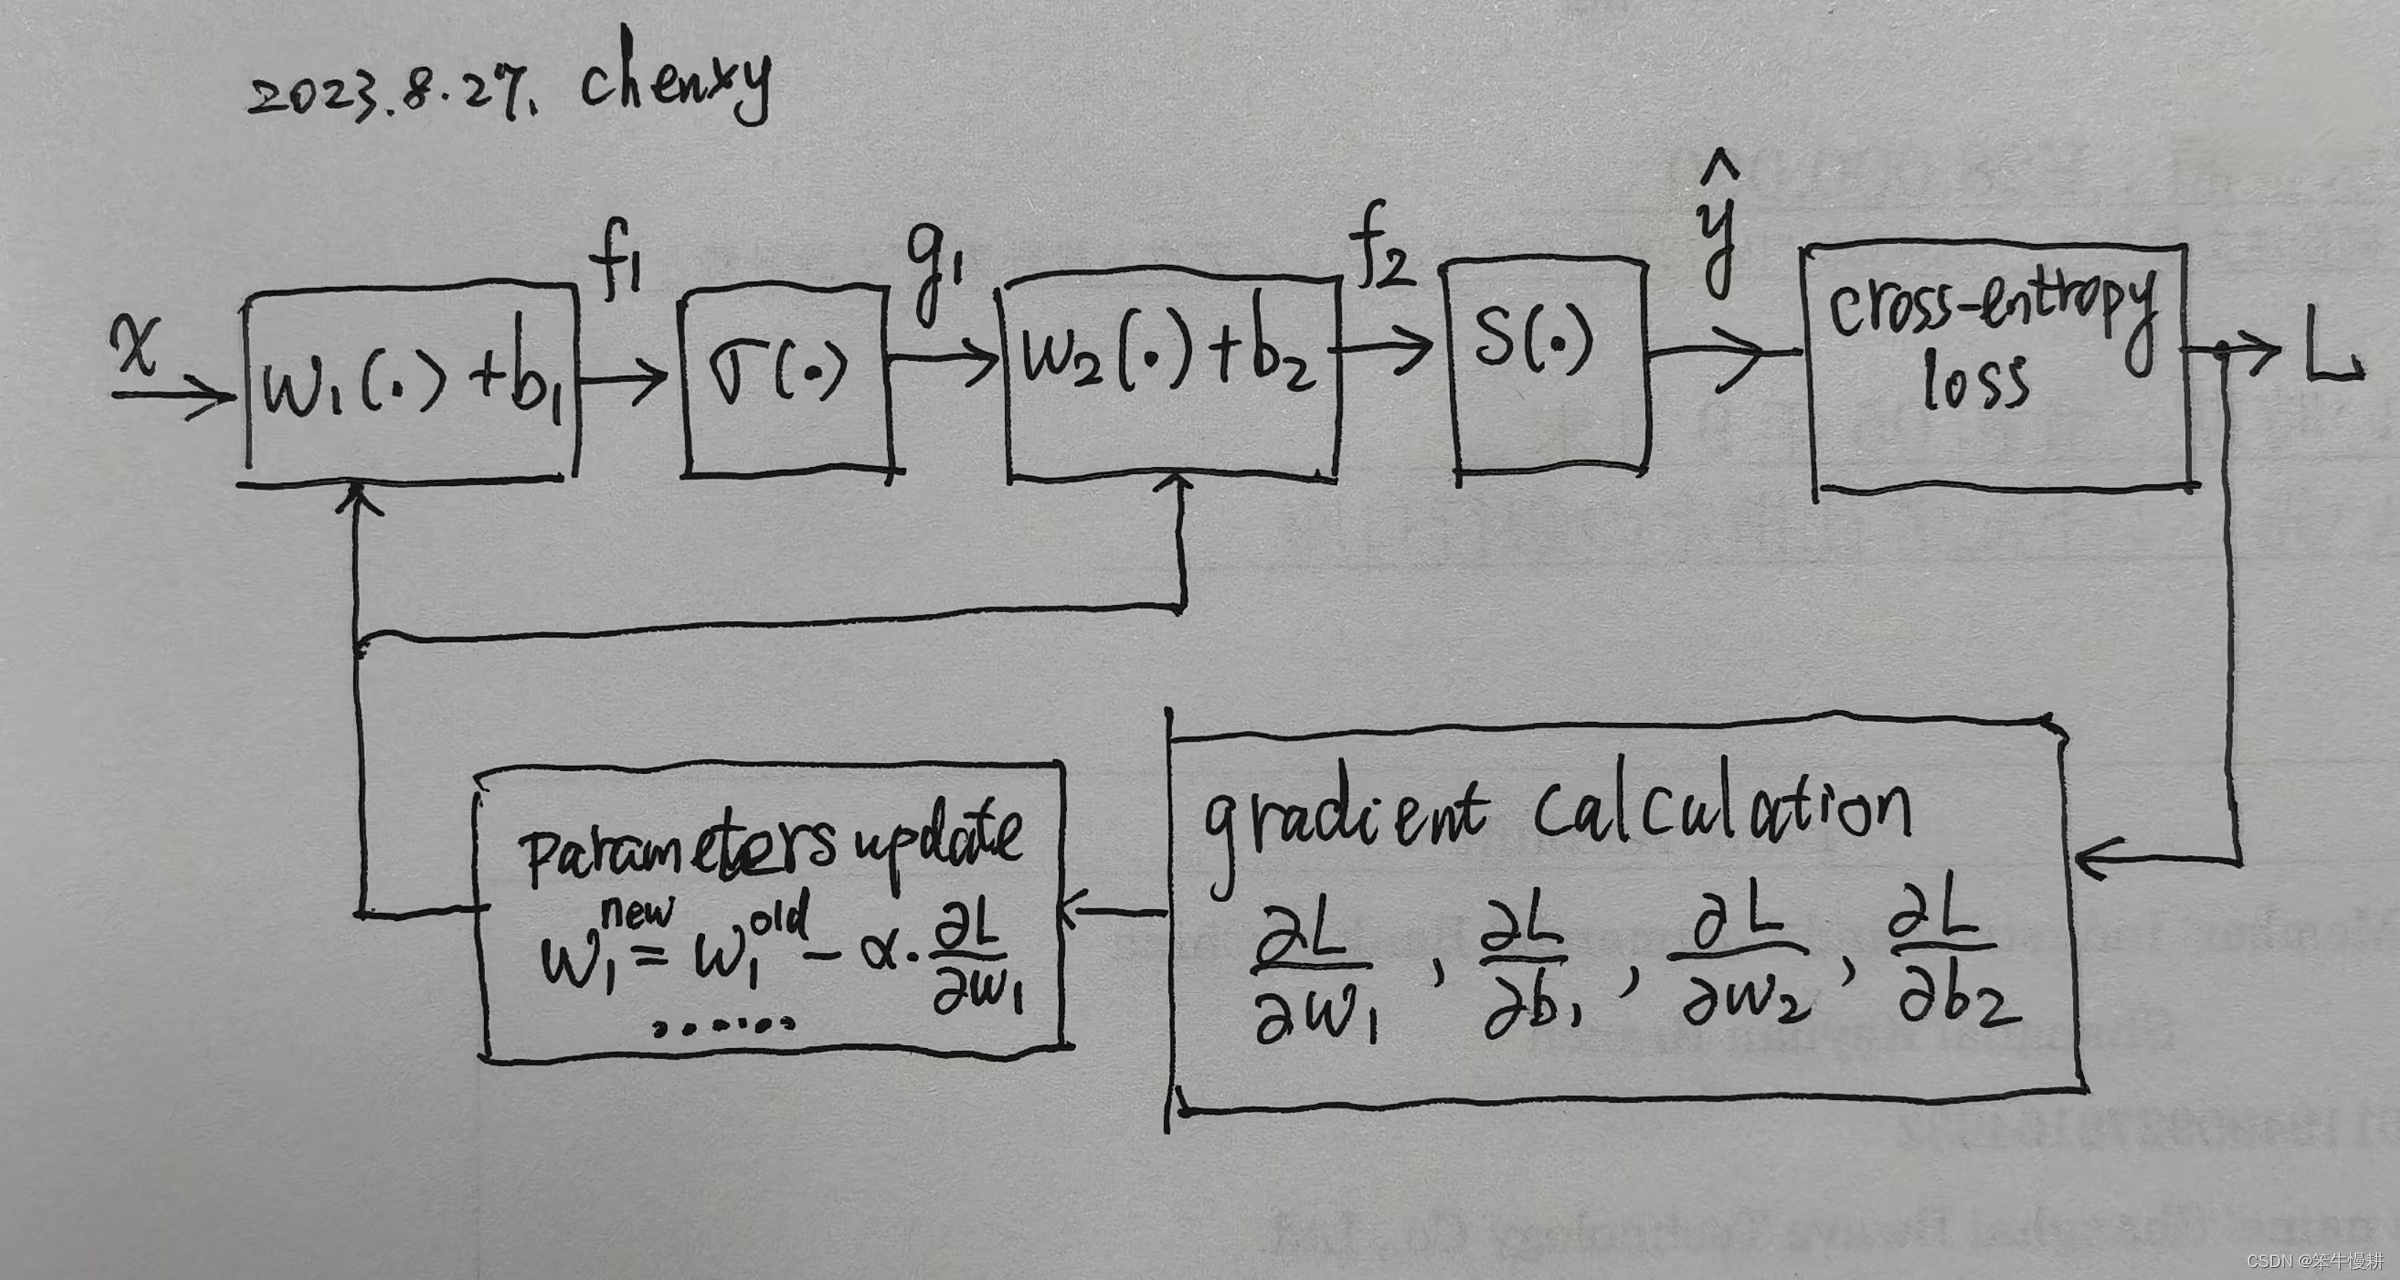 2023.8.27. chenxy
x
w₁(·)+b₁
f₁
σ(·)
g₁
w₂(·)+b₂
f₂
S(·)
ŷ
cross-entropy
loss
L
parameters update
w₁ⁿᵉʷ = w₁ᵒˡᵈ - α·∂L/∂w₁
······
gradient calculation
∂L/∂w₁ , ∂L/∂b₁ , ∂L/∂w₂ , ∂L/∂b₂
CSDN @笨牛慢耕